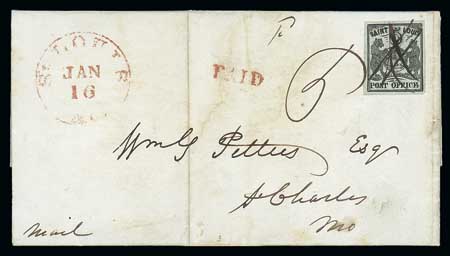 ST LOUIS
JAN
16
PAID
5
SAINT LOUIS
POST OFFICE
Wm G Pettus Esq
St Charles
Mo
mail